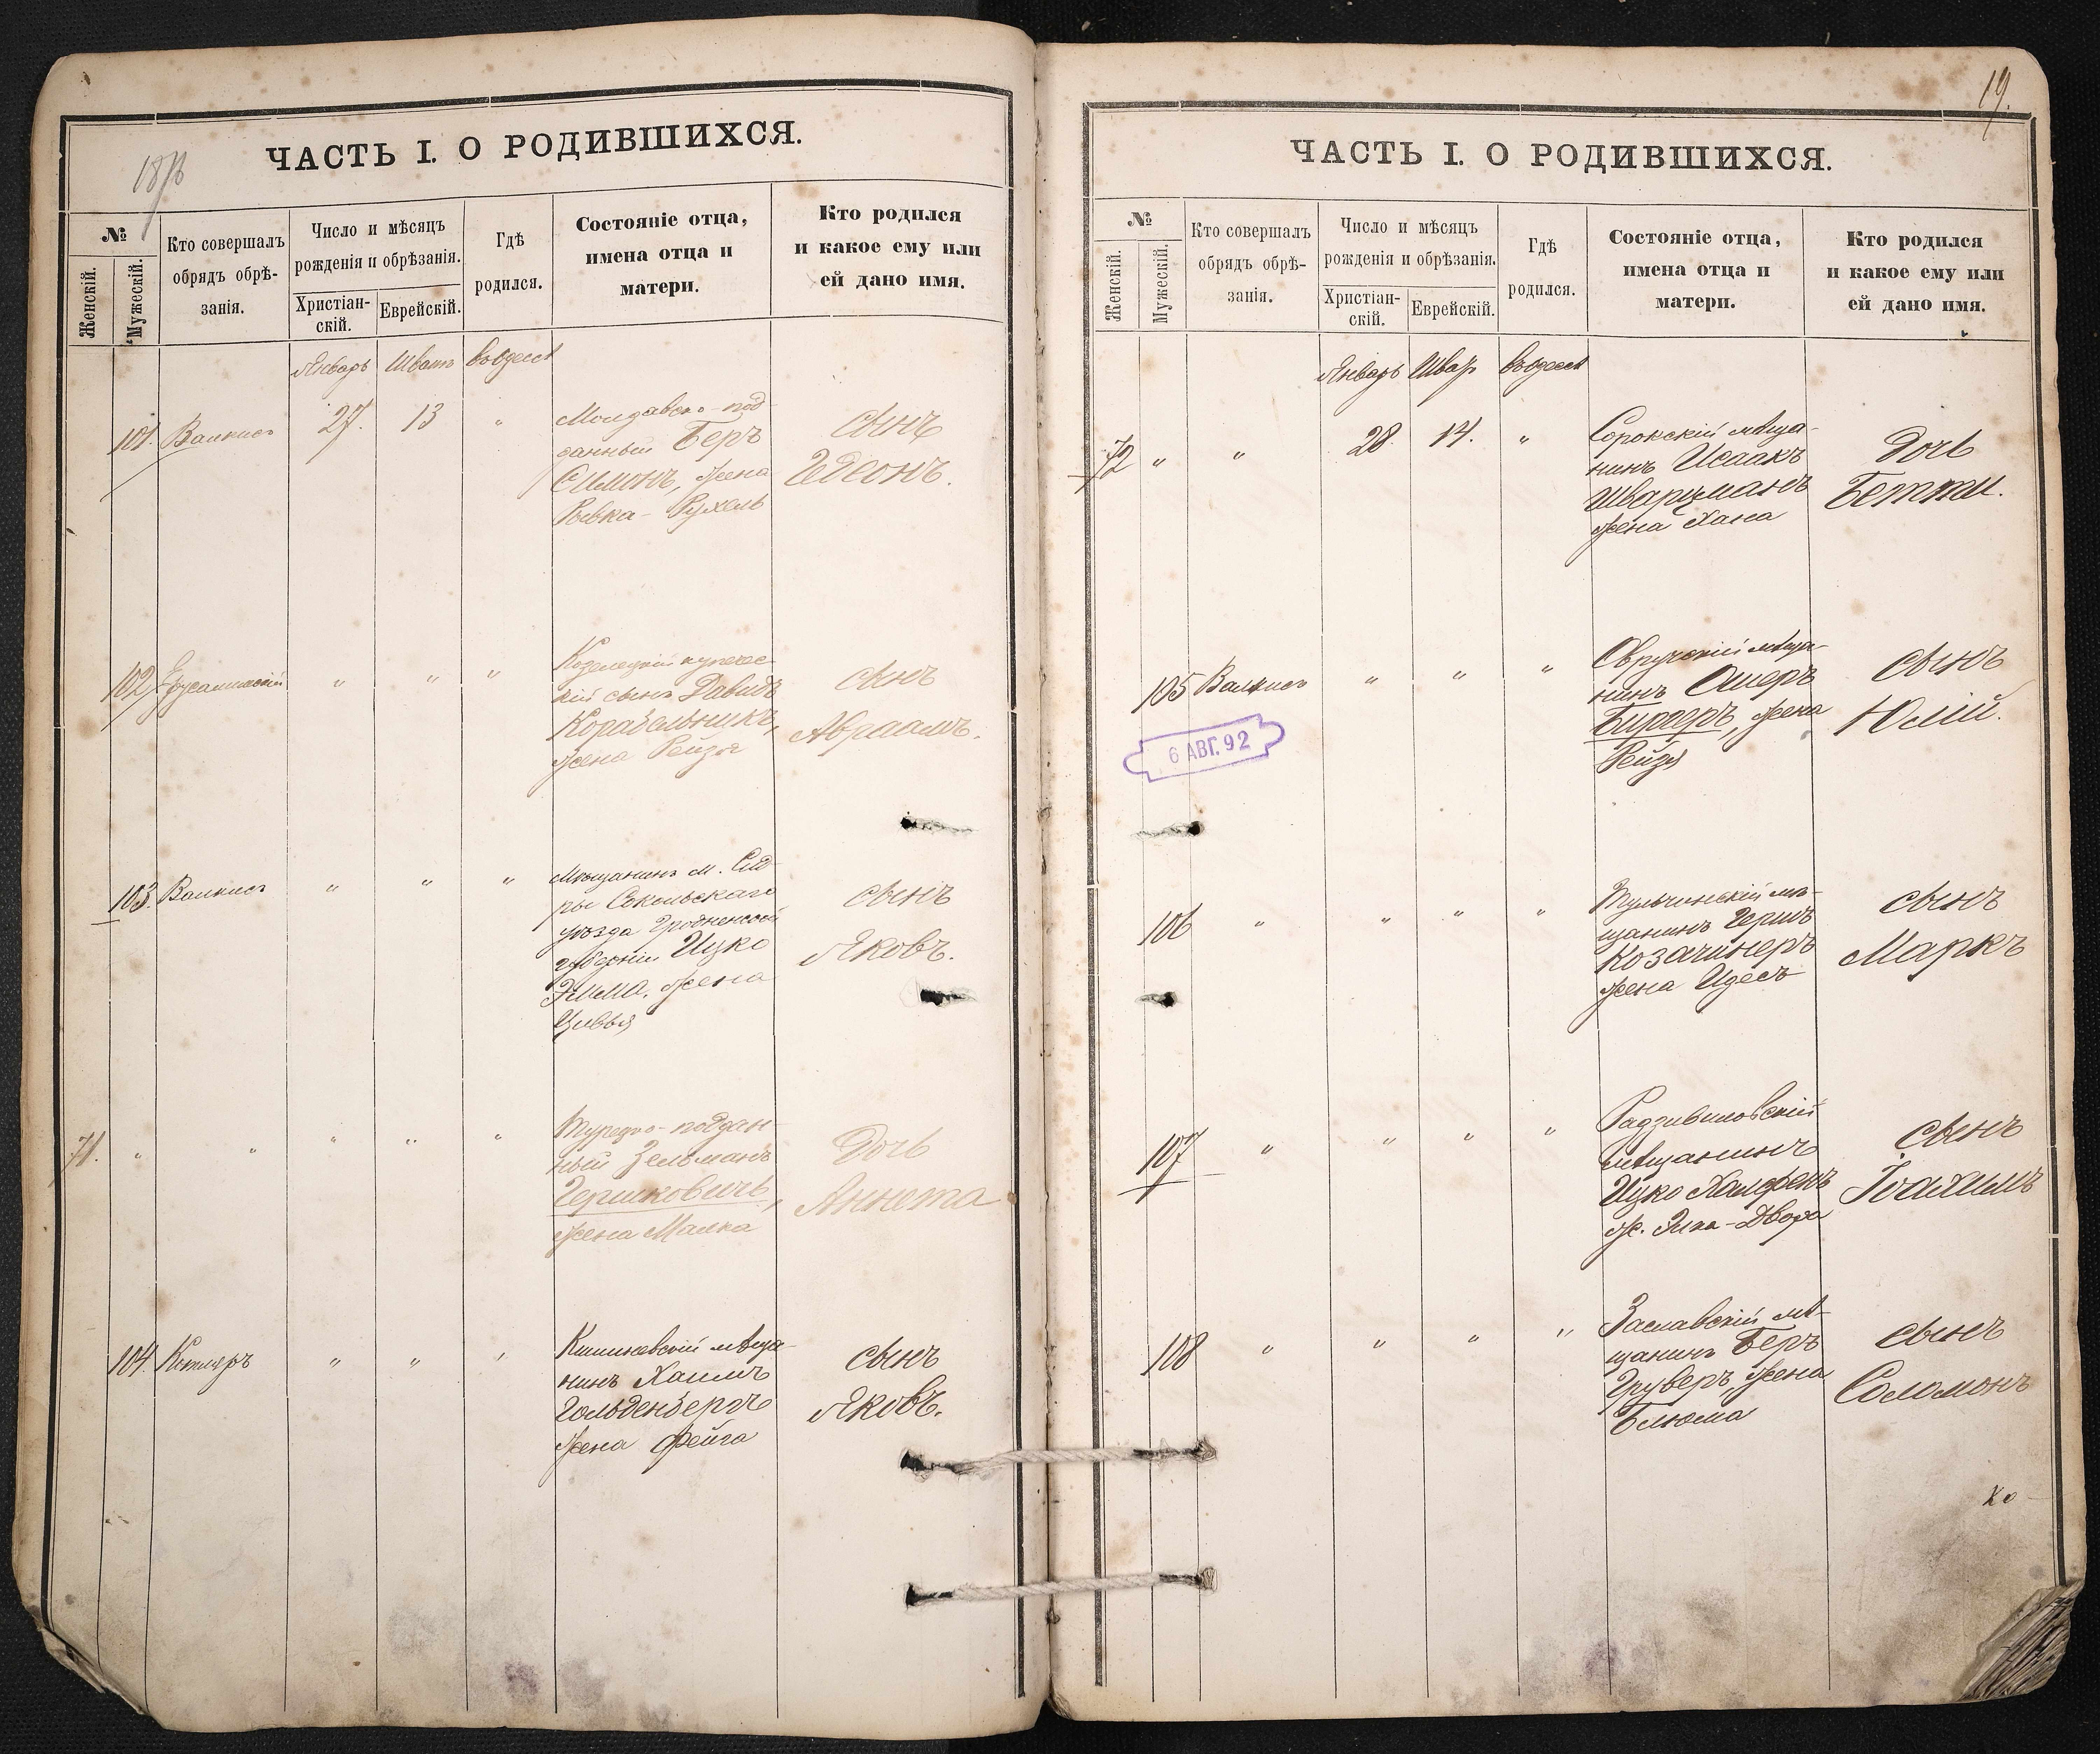 1876
ЧАСТЬ I. О РОДИВШИХСЯ.
№
Женскій.
Мужескій.
Кто совершалъ
обрядъ обрѣ-
занія.
Число и мѣсяцъ
рожденія и обрѣзанія.
Христіан-
скій.
Еврейскій.
Гдѣ
родился.
Состояніе отца,
имена отца и
матери.
Кто родился
и какое ему или
ей дано имя.
Январь Шватъ въ Одессѣ
101. Валкисъ 27. 13 "
Молдавско-под-
данный Беръ
Симонъ, жена
Ривка-Рухель
сынъ
Гедеонъ.
102 Ерусалимскій " " "
Козелецкій купечес-
кій сынъ Давидъ
Корабельникъ,
жена Рейзя
сынъ
Авраамъ.
103. Валкисъ " " "
Мѣщанинъ м. Сид-
ры Сокольскаго
уѣзда Гродненской
губерніи Ицко
Жена
Цивья
сынъ
Яковъ.
71. " " " " "
Турецко-поддан-
ный Зельманъ
Гершковичъ,
жена Малка
Дочь
Аннета
104. Котляръ " " "
Кишиневскій мѣща-
нинъ Хаимъ
Гольденбергъ
жена Фейга
сынъ
Яковъ.
19.
ЧАСТЬ I. О РОДИВШИХСЯ.
№
Женскій.
Мужескій.
Кто совершалъ
обрядъ обрѣ-
занія.
Число и мѣсяцъ
рожденія и обрѣзанія.
Христіан-
скій.
Еврейскій.
Гдѣ
родился.
Состояніе отца,
имена отца и
матери.
Кто родился
и какое ему или
ей дано имя.
Январь въ Одессѣ
72 " " 28. 14. "
Сорокскій мѣща-
нинъ Исаакъ
Шварцманъ
жена Хана
Дочь
Бетти.
105 Валкисъ " " "
6 АВГ. 92
Овручскій мѣща-
нинъ Ошеръ
Биргеръ, жена
Рейзя
сынъ
Юлій.
106 " " " "
Тульчинскій мѣ-
щанинъ Гершъ
Козачинеръ
жена Идесъ
сынъ
Маркъ
107 " " " "
Радзивиловскій
мѣщанинъ
Ицко Халфенъ
ж. Элка-Двора
сынъ
Іоахимъ
108 " " " "
Заславскій мѣ-
щанинъ Беръ
Груберъ, жена
Блюма
сынъ
Соломонъ
Ко-